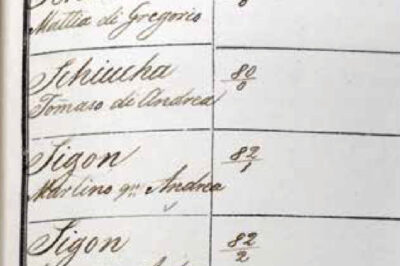 Mattia di Gregorio
Schiucha 80/0
Tomaso di Andrea
Sigon 82/1
Martino qm Andrea
Sigon 82/2